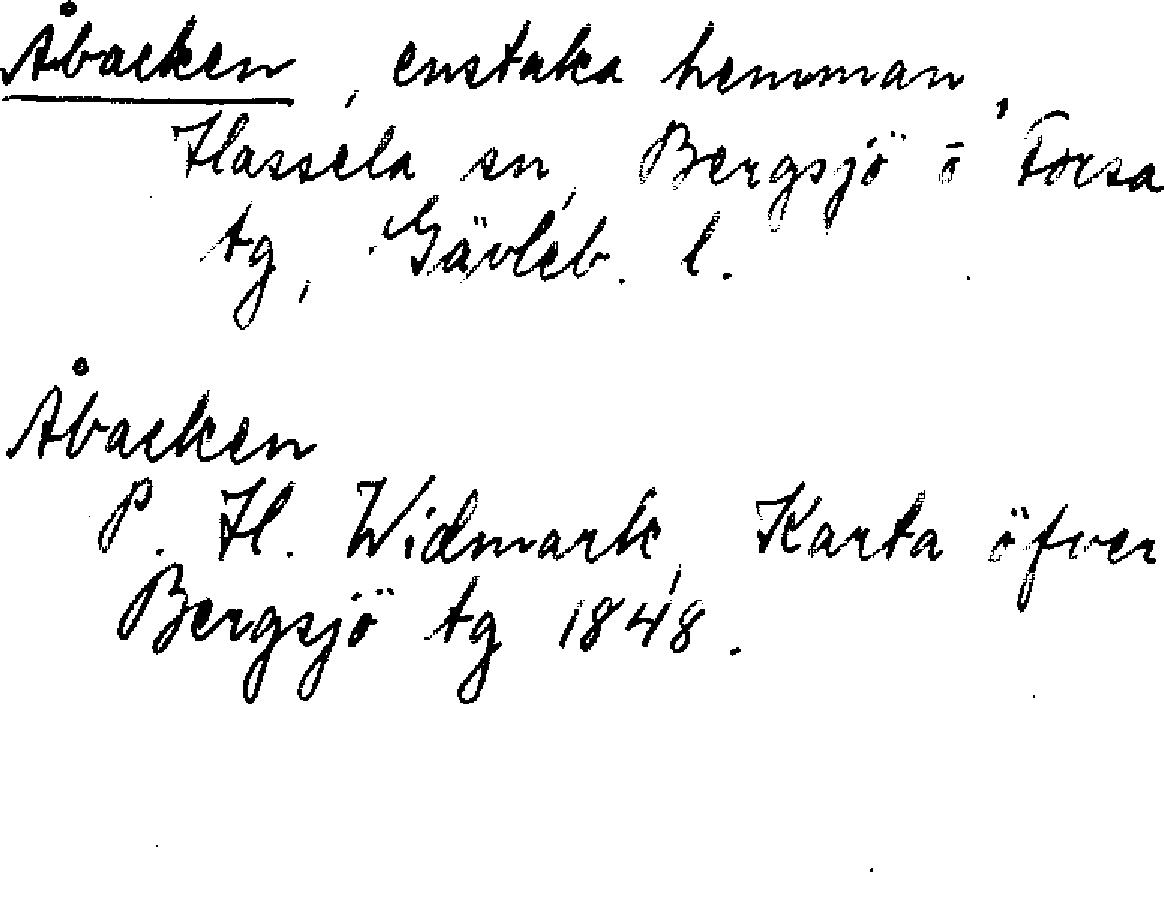 Åbacken, enstaka hemman,
Hassela sn, Bergsjö o Forsa
tg, Gävleb. l.
Åbacken
P. H. Widmark, Karta öfver
Bergsjö tg 1848.